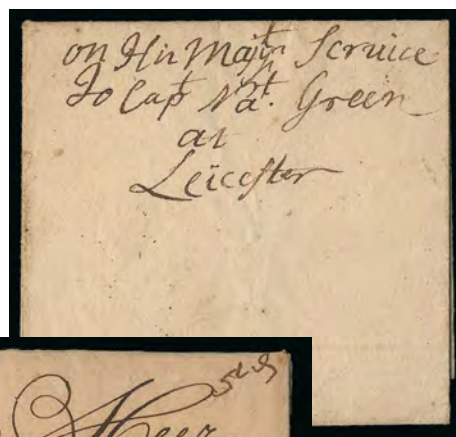 on His Majts Service
To Capt Nat. Green
at
Leicester
Heer